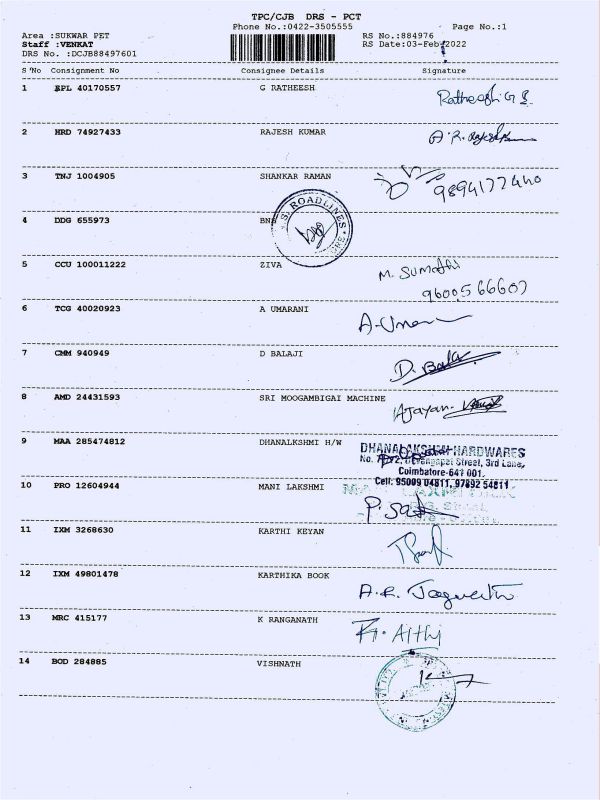 TPC/CJB DRS - PCT
Phone No.:0422-3505555 Page No.:1
Area :SUKWAR PET RS No.:884976
Staff :VENKAT RS Date:03-Feb-2022
DRS No. :DCJB88497601
S'No Consignment No Consignee Details Signature
1 EPL 40170557 G RATHEESH Ratheesh G S
2 HRD 74927433 RAJESH KUMAR A.R. Rajesh
3 TNJ 1004905 SHANKAR RAMAN 9894177440
4 DDG 655973 BNE S. ROADLINES
5 CCU 100011222 ZIVA M. Sumathi
9600566607
6 TCG 40020923 A UMARANI A-Uma
7 CMM 940949 D BALAJI D. Bala
8 AMD 24431593 SRI MOOGAMBIGAI MACHINE Ajayan.
9 MAA 285474812 DHANALKSHMI H/W DHANALAKSHMI HARDWARES
Street, 3rd Lane,
Coimbatore-641 001.
Cell: 95009 04811, 97892 54811
10 PRO 12604944 MANI LAKSHMI
11 IXM 3268630 KARTHI KEYAN
12 IXM 49801478 KARTHIKA BOOK A.R.
13 MRC 415177 K RANGANATH
14 BOD 284885 VISHNATH